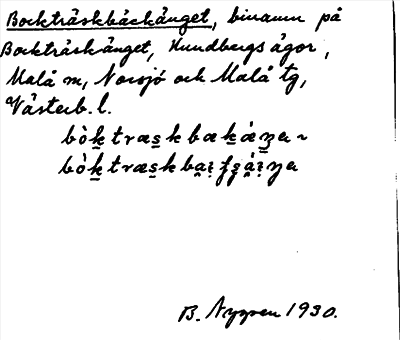 Bockträskbäckänget, binamn på
Bockträskänget, Kundbergs ägor,
Malå sn, Norsjö och Malå tg,
Västerb. l.
bòk̲træs̲kbæk̲æ̀ŋa ~
B. Nygren 1930.